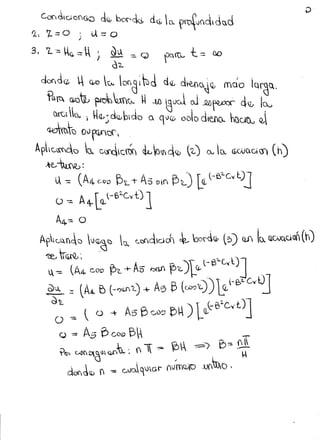 Condiciones de borde de la profundidad
2. Z = 0 ; u = 0
3. Z = H₀ = H ; ∂u/∂z = 0 para t = ∞
donde H es la longitud de drenaje más larga.
Para este problema H es igual al espesor de la
arcilla, H₀; debido a que solo drena hacia el
estrato superior,
Aplicando la condición de borde (2) a la ecuación (h)
se tiene:
u = (A₄ cos Bz + A₅ sin Bz) [e^(-B²Cvt)]
0 = A₄ [e^(-B²Cvt)]
A₄ = 0
Aplicando luego la condición de borde (3) en la ecuación (h)
se tiene:
u = (A₄ cos Bz + A₅ sen Bz) [e^(-B²Cvt)]
∂u/∂z = (A₄ B (-sen z) + A₅ B (cos z)) [e^(-B²Cvt)]
0 = (0 + A₅ B cos BH) [e^(-B²Cvt)]
0 = A₅ B cos BH
Por consiguiente: n π = BH => B = nπ/H
donde n = cualquier número entero.